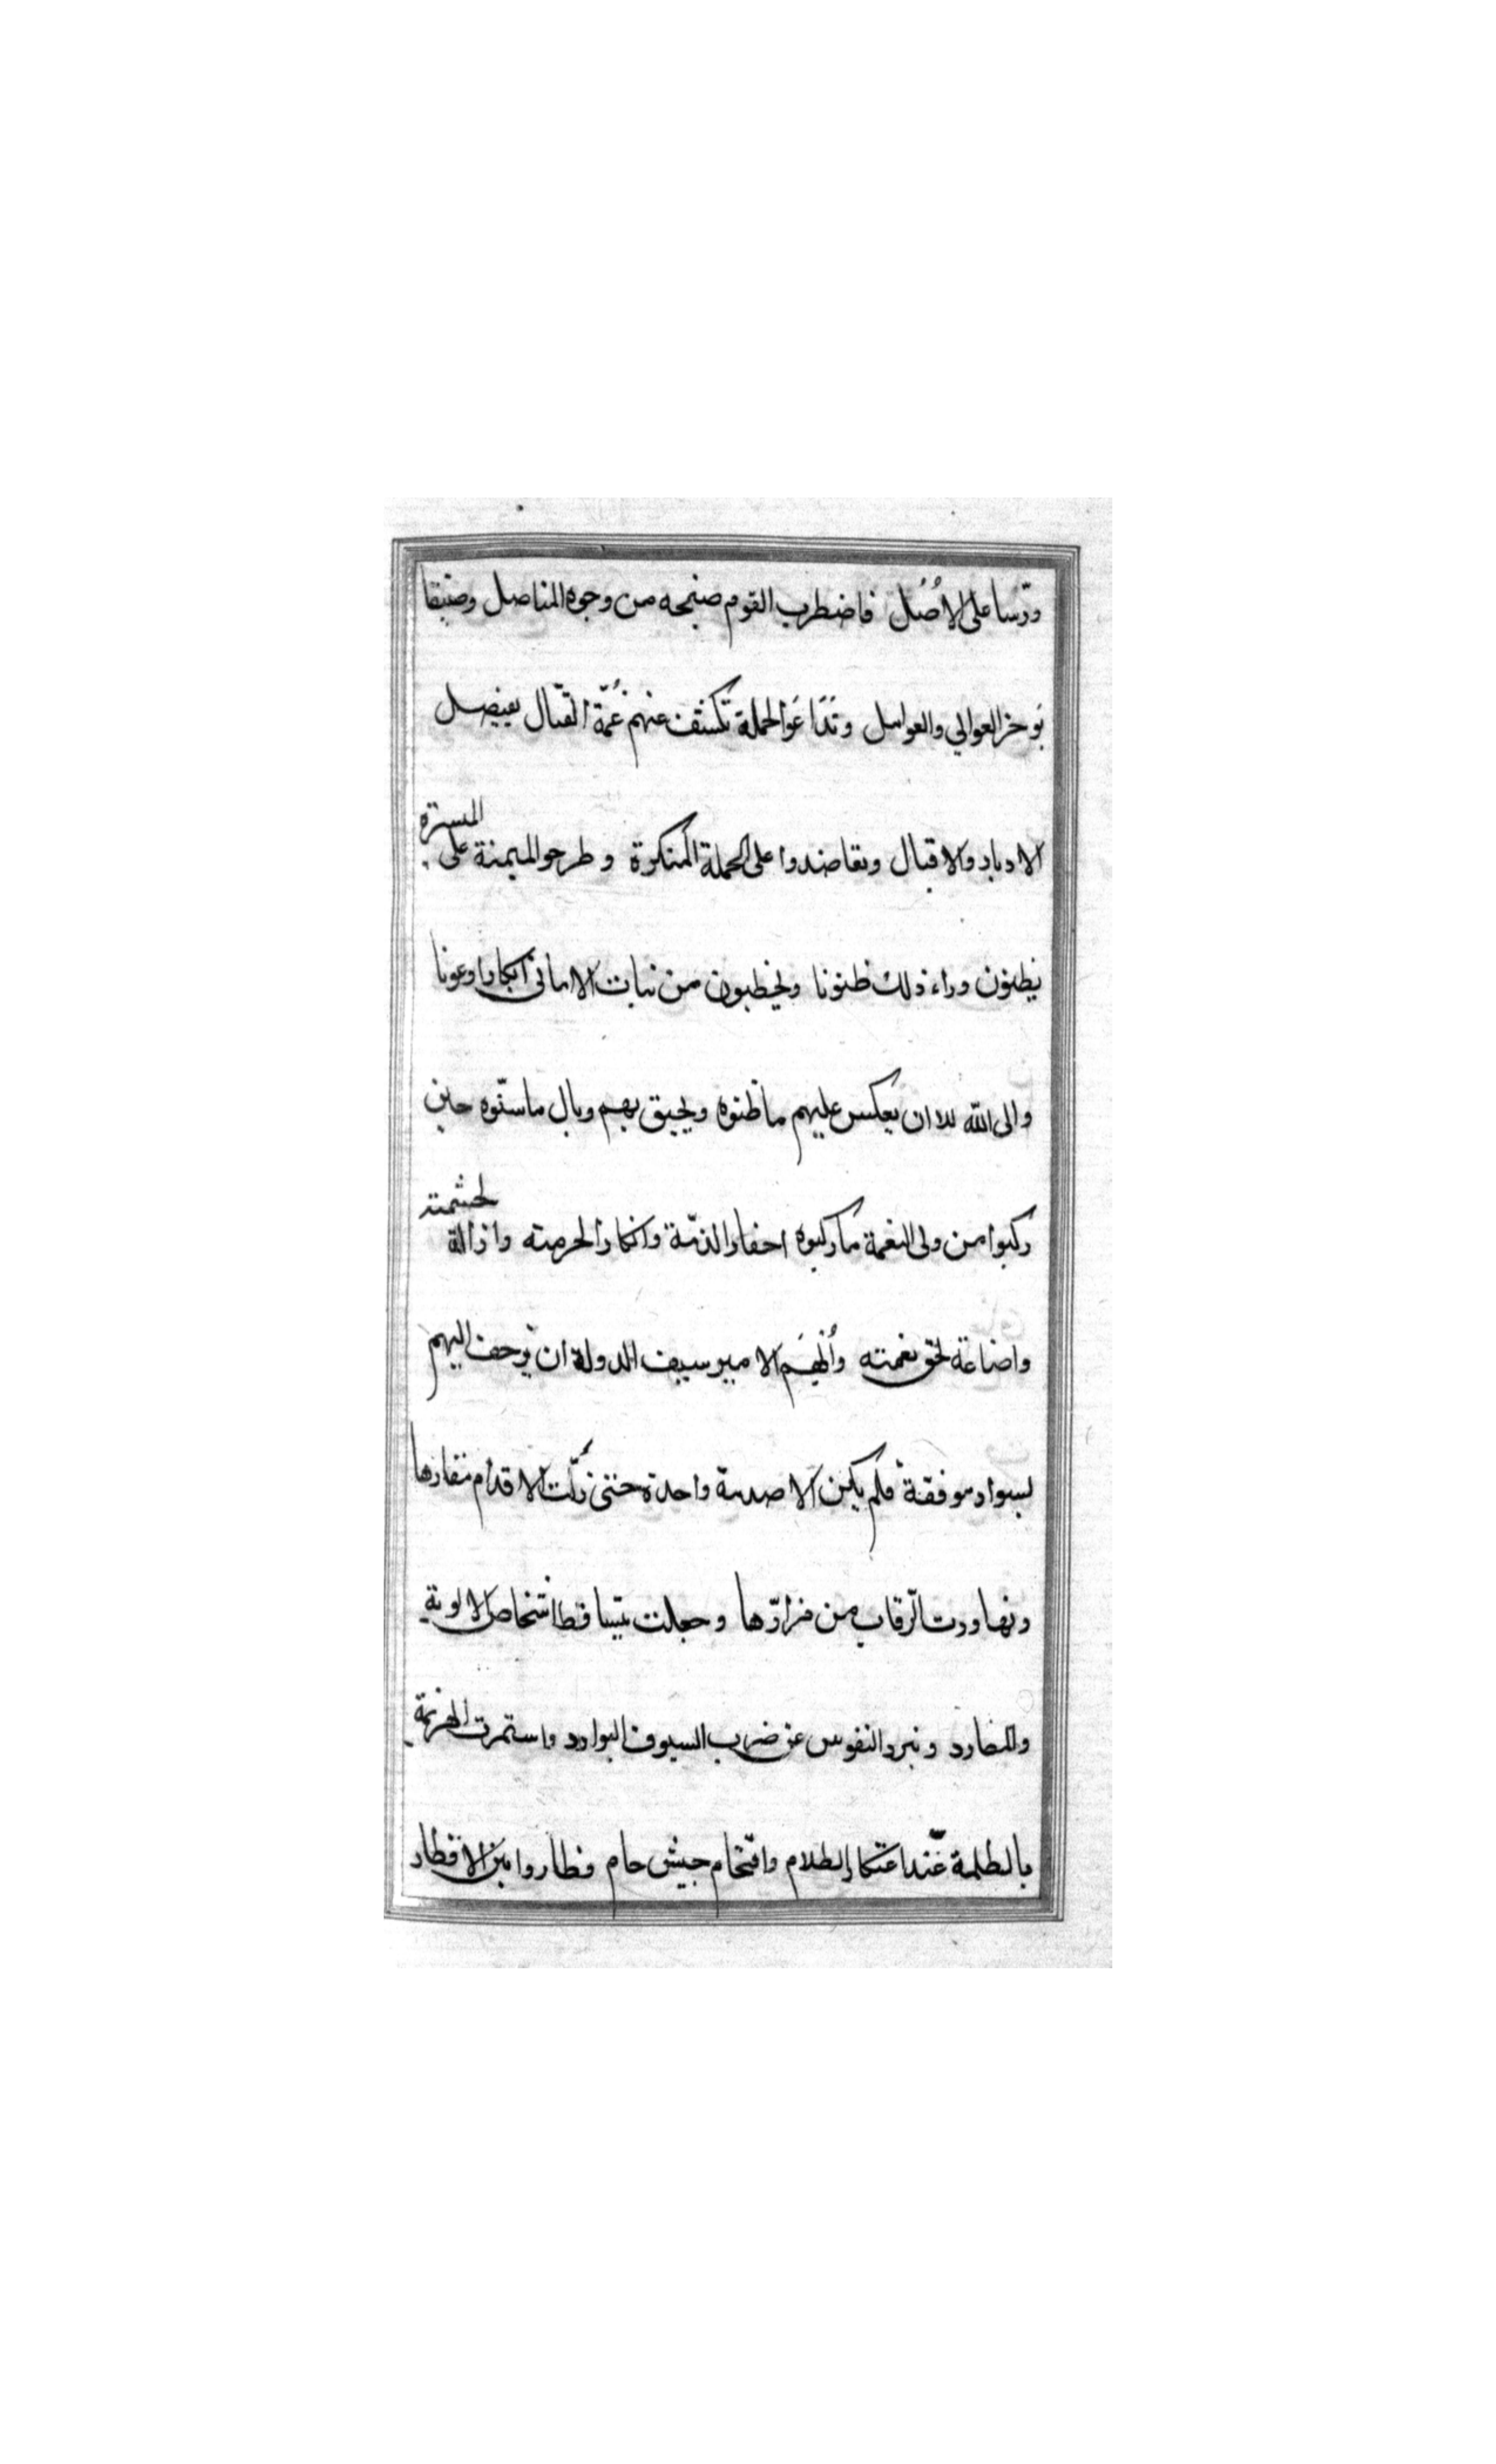 ودّسا على الأُصُل فاضطرب القوم صنجحه من وجوه المناصل وضيقا
بَوخز العوالي والعواسل وتَدَاعَوا لحملة تكشف عنهم غُمّة القتال بفيصل
الادبار والاقبال وتعاضدوا على الحملة المنكرة وطرحو الميمنة على الميسرة
يظنون وراء ذلك ظنونا ويخطبون من نبات الامانى ابكارا وعونا
والى الله الا ان يعكس عليهم ما ظنوه ويحيق بهم وبال ما سنّوه حين
ركبوا من ولى النعمة ما ركبوه احفارا لذمّة وانكارا لحرمته واذالة لحشمته
واضاعة لحق نعمته وأُلْهِمَ الامير سيف الدولة ان يزحف اليهم
بسواد موفقة فلم يكن الا صدمة واحدة حتى زلّت الاقدام مقارها
وتهاورت الرّقاب من مزارّها وجعلت يتساقط اشخاص الالوية
والمطارد وتبرد النفوس عن ضرب السيوف البوارد واستمرت الهزيمة
بالظلمة عند اعتكار الظلام واقتحام جيش حام فطاروا بين الاقطار